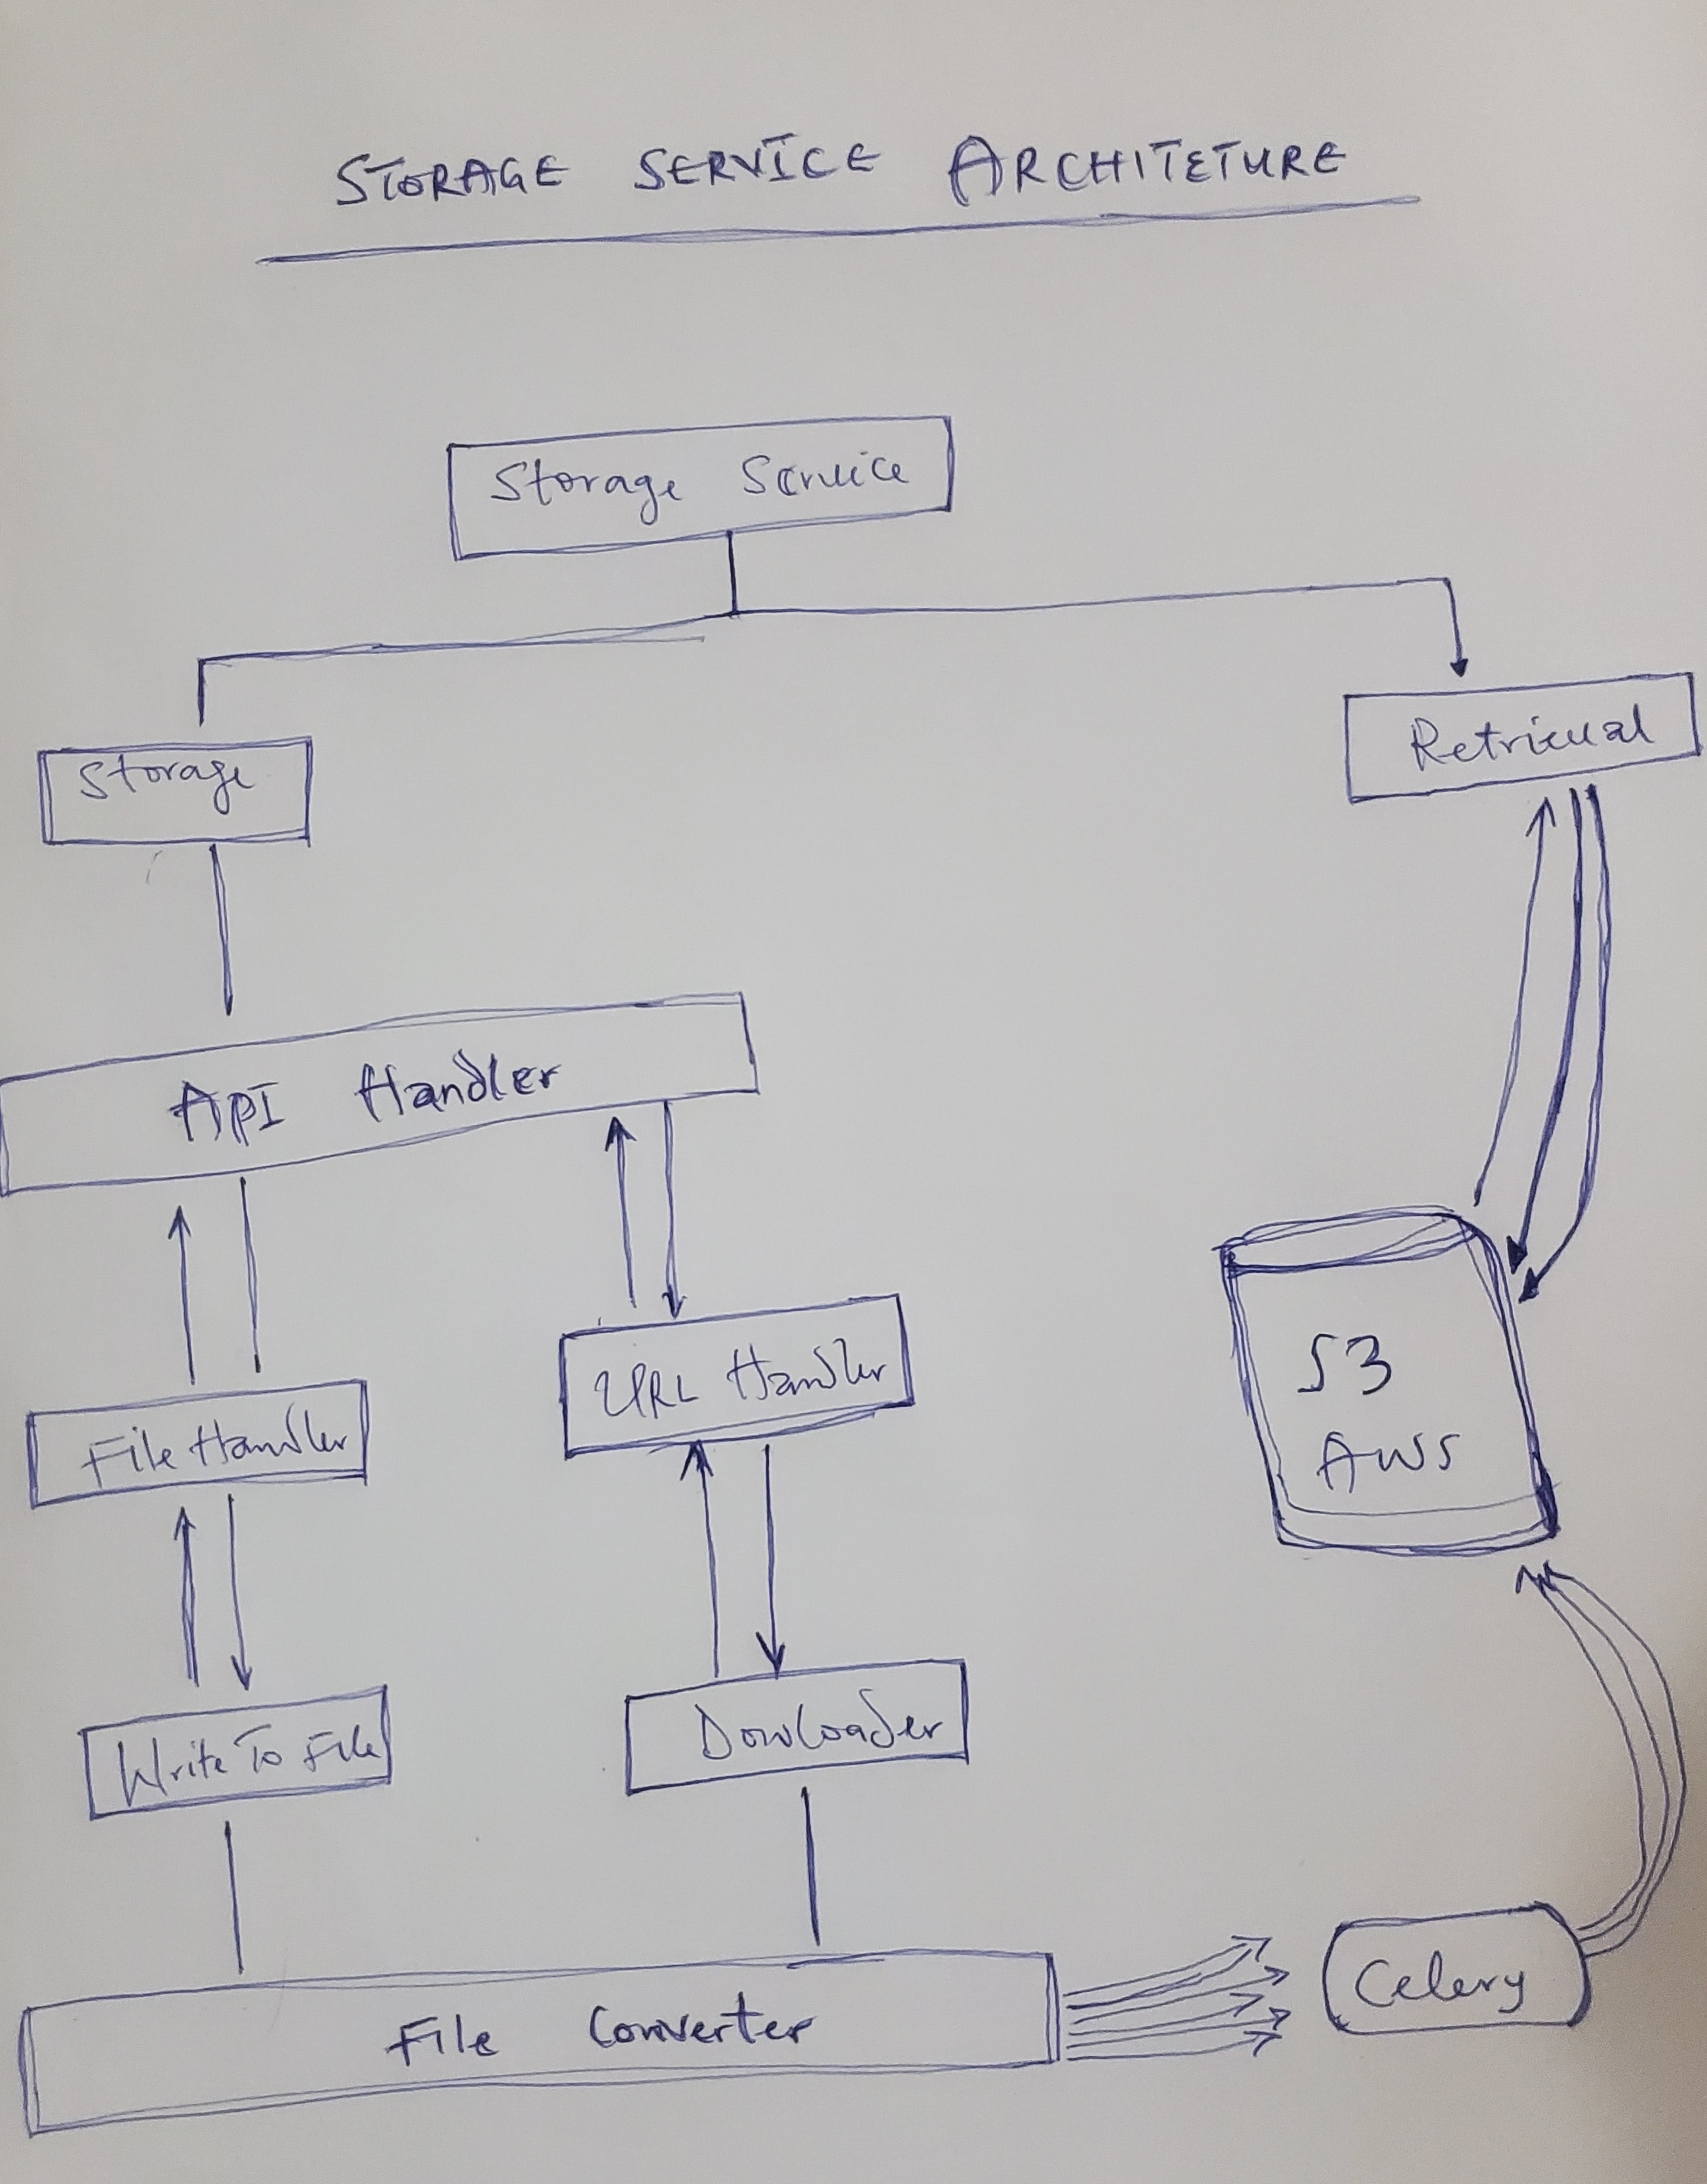 STORAGE SERVICE ARCHITETURE
Storage Service
Storage
Retrieval
API Handler
File Handler
URL Handler
S3
AWS
Write To File
Dowloader
File Converter
Celery